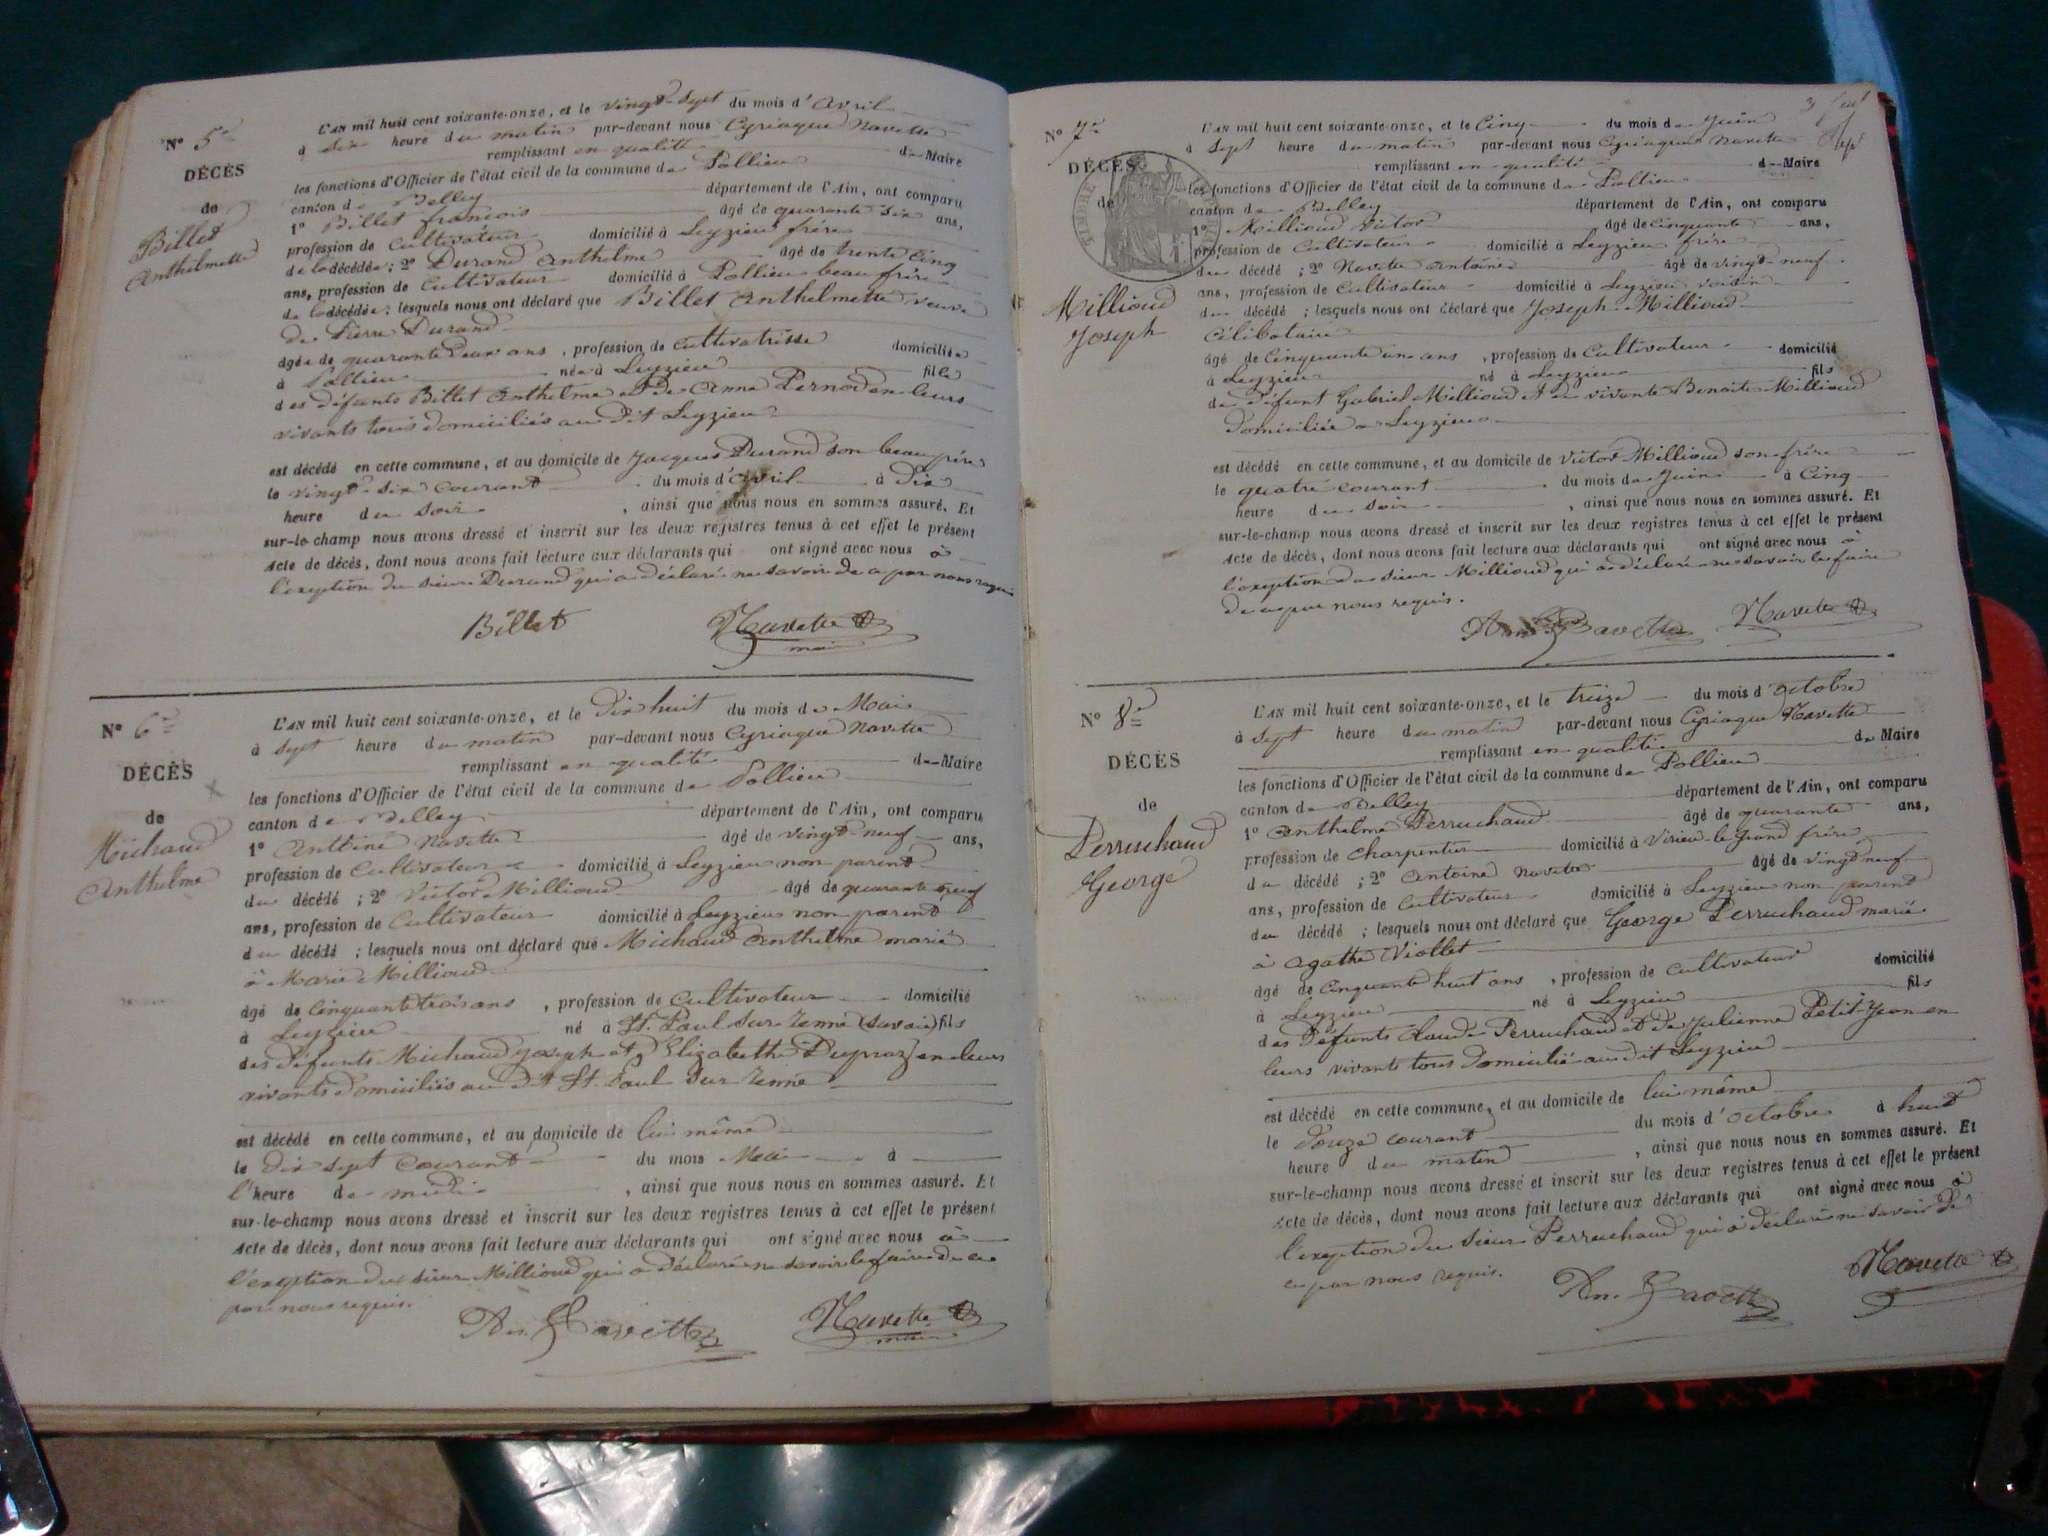 N° 5e
DÉCÈS
de
Billet
Anthelmette
L'AN mil huit cent soixante-onze, et le vingt-sept du mois d'Avril
à six heure du matin par-devant nous Cyriaque Navette
remplissant en qualité de Maire
les fonctions d'Officier de l'état civil de la commune de Pollieu
canton de Belley département de l'Ain, ont comparu
1° Billet françois âgé de quarante six ans,
profession de Cultivateur domicilié à Leyzieu frère
de la décédée ; 2° Durand Anthelme âgé de trente cinq
ans, profession de Cultivateur domicilié à Pollieu beau frère
de la décédée ; lesquels nous ont déclaré que Billet Anthelmette veuve
de Pierre Durand
âgée de quarante deux ans , profession de Cultivatrisse domiciliée
à Pollieu née à Leyzieu fille
des défunts Billet Anthelme et de Anne Pernod en leurs
vivants tous domiciliés au dit Leyzieu
est décédé en cette commune, et au domicile de Jacques Durand son beau frère
le vingt-six courant du mois d'avril à Dix
heure du soir , ainsi que nous nous en sommes assuré. Et
sur-le-champ nous avons dressé et inscrit sur les deux registres tenus à cet effet le présent
acte de décès, dont nous avons fait lecture aux déclarants qui ont signé avec nous à
l'exeption du sieur Durand qui a déclaré ne savoir de ce par nous requis
Billet Navette
maire
N° 6e
DÉCÈS
de
Michaud
Anthelme
L'AN mil huit cent soixante-onze, et le Dix huit du mois de Mai
à sept heure du matin par-devant nous Cyriaque Navette
remplissant en qualité de Maire
les fonctions d'Officier de l'état civil de la commune de Pollieu
canton de Belley département de l'Ain, ont comparu
1° Antoine Navette âgé de vingt neuf ans,
profession de Cultivateur domicilié à Leyzieu non parent
du décédé ; 2° Victor Millioud âgé de quarante neuf
ans, profession de Cultivateur domicilié à Leyzieu non parent
du décédé ; lesquels nous ont déclaré que Michaud Anthelme marié
à Marie Millioud
âgé de Cinquante trois ans , profession de Cultivateur domicilié
à Leyzieu né à St. Paul sur Yenne (Savoie) fils
des défunts Michaud Joseph et Elizabeth Dupraz en leurs
vivants domiciliés au dit St. Paul sur Yenne
est décédé en cette commune, et au domicile de lui même
le Dix sept Courant du mois Mai à
l'heure de midi , ainsi que nous nous en sommes assuré. Et
sur-le-champ nous avons dressé et inscrit sur les deux registres tenus à cet effet le présent
acte de décès, dont nous avons fait lecture aux déclarants qui ont signé avec nous à
l'exeption du sieur Millioud qui a déclaré ne savoir le faire de ce
par nous requis.
An. Navette Navette
maire
3e feuil
N° 7e
DÉCÈS
de
TIMBRE
Millioud
Joseph
L'AN mil huit cent soixante-onze, et le Cinq du mois de Juin
à sept heure du matin par-devant nous Cyriaque Navette
remplissant en qualité de Maire
les fonctions d'Officier de l'état civil de la commune de Pollieu
canton de Belley département de l'Ain, ont comparu
1° Millioud Victor âgé de cinquante ans,
profession de Cultivateur domicilié à Leyzieu frère
du décédé ; 2° Navette Antoine âgé de vingt-neuf
ans, profession de Cultivateur domicilié à Leyzieu voisin
du décédé ; lesquels nous ont déclaré que Joseph Millioud
Célibataire
âgé de Cinquante un ans , profession de Cultivateur domicilié
à Leyzieu né à Leyzieu fils
de défunt Gabriel Millioud et de vivante Benoite Millioud
domiciliée à Leyzieu
est décédé en cette commune, et au domicile de Victor Millioud son frère
le quatre courant du mois de Juin à Cinq
heure du soir , ainsi que nous nous en sommes assuré. Et
sur-le-champ nous avons dressé et inscrit sur les deux registres tenus à cet effet le présent
acte de décès, dont nous avons fait lecture aux déclarants qui ont signé avec nous à
l'exeption du sieur Millioud qui a déclaré ne savoir le faire
de ce par nous requis.
An. Navette Navette
N° 8e
DÉCÈS
de
Perruchaud
George
L'AN mil huit cent soixante-onze, et le treize du mois d'octobre
à sept heure du matin par-devant nous Cyriaque Navette
remplissant en qualité de Maire
les fonctions d'Officier de l'état civil de la commune de Pollieu
canton de Belley département de l'Ain, ont comparu
1° Anthelme Perruchaud âgé de quarante ans,
profession de Charpentier domicilié à Virieu-le-grand frère
du décédé ; 2° Antoine Navette âgé de vingt neuf
ans, profession de Cultivateur domicilié à Leyzieu non parent
du décédé ; lesquels nous ont déclaré que George Perruchaud marié
à Agathe Viollet
âgé de Cinquante huit ans , profession de Cultivateur domicilié
à Leyzieu né à Leyzieu fils
des Défunts Claude Perruchaud et de Julienne Petit-Jean en
leurs vivants tous Domicilié au dit Leyzieu
est décédé en cette commune, et au domicile de lui même
le Douze courant du mois d'octobre à huit
heure du matin , ainsi que nous nous en sommes assuré. Et
sur-le-champ nous avons dressé et inscrit sur les deux registres tenus à cet effet le présent
acte de décès, dont nous avons fait lecture aux déclarants qui ont signé avec nous à
l'exeption du sieur Perruchaud qui à déclaré ne savoir de
ce par nous requis.
An. Navette Navette